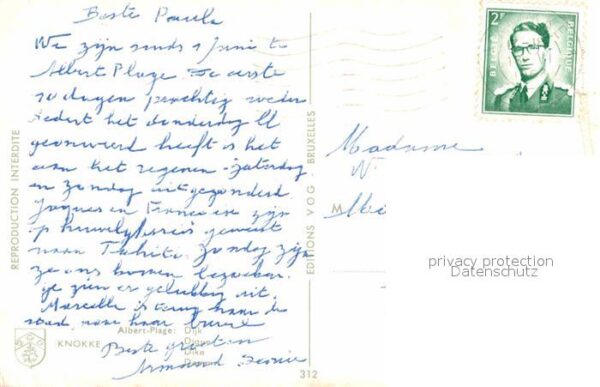 Beste Paula
We zijn sinds 1 Juni te
Albert Plage De eerste
10 dagen prachtig weder
Sedert het donderdag ll
geonweerd heeft is het
aan het regenen - zaterdag
en zondag uitgezonderd
Jaques en Francoise zijn
op huwelijksreis geweest
naar Tahiti. Zondag zijn
ze ons komen bezoeken.
ze zien er gelukkig uit.
Marcelle is terug naar de
stad, naar haar bureel
Beste groeten
Armand
Madame
REPRODUCTION INTERDITE
EDITIONS VOG BRUXELLES
M
KNOKKE
Albert-Plage: Dijk
Digue
312
2F
BELGIE BELGIQUE
privacy protection
Datenschutz